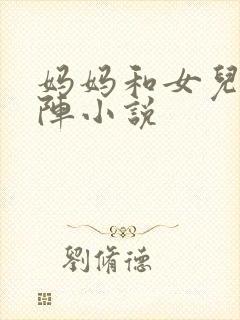 妈妈和女兒
陣小说
劉脩德